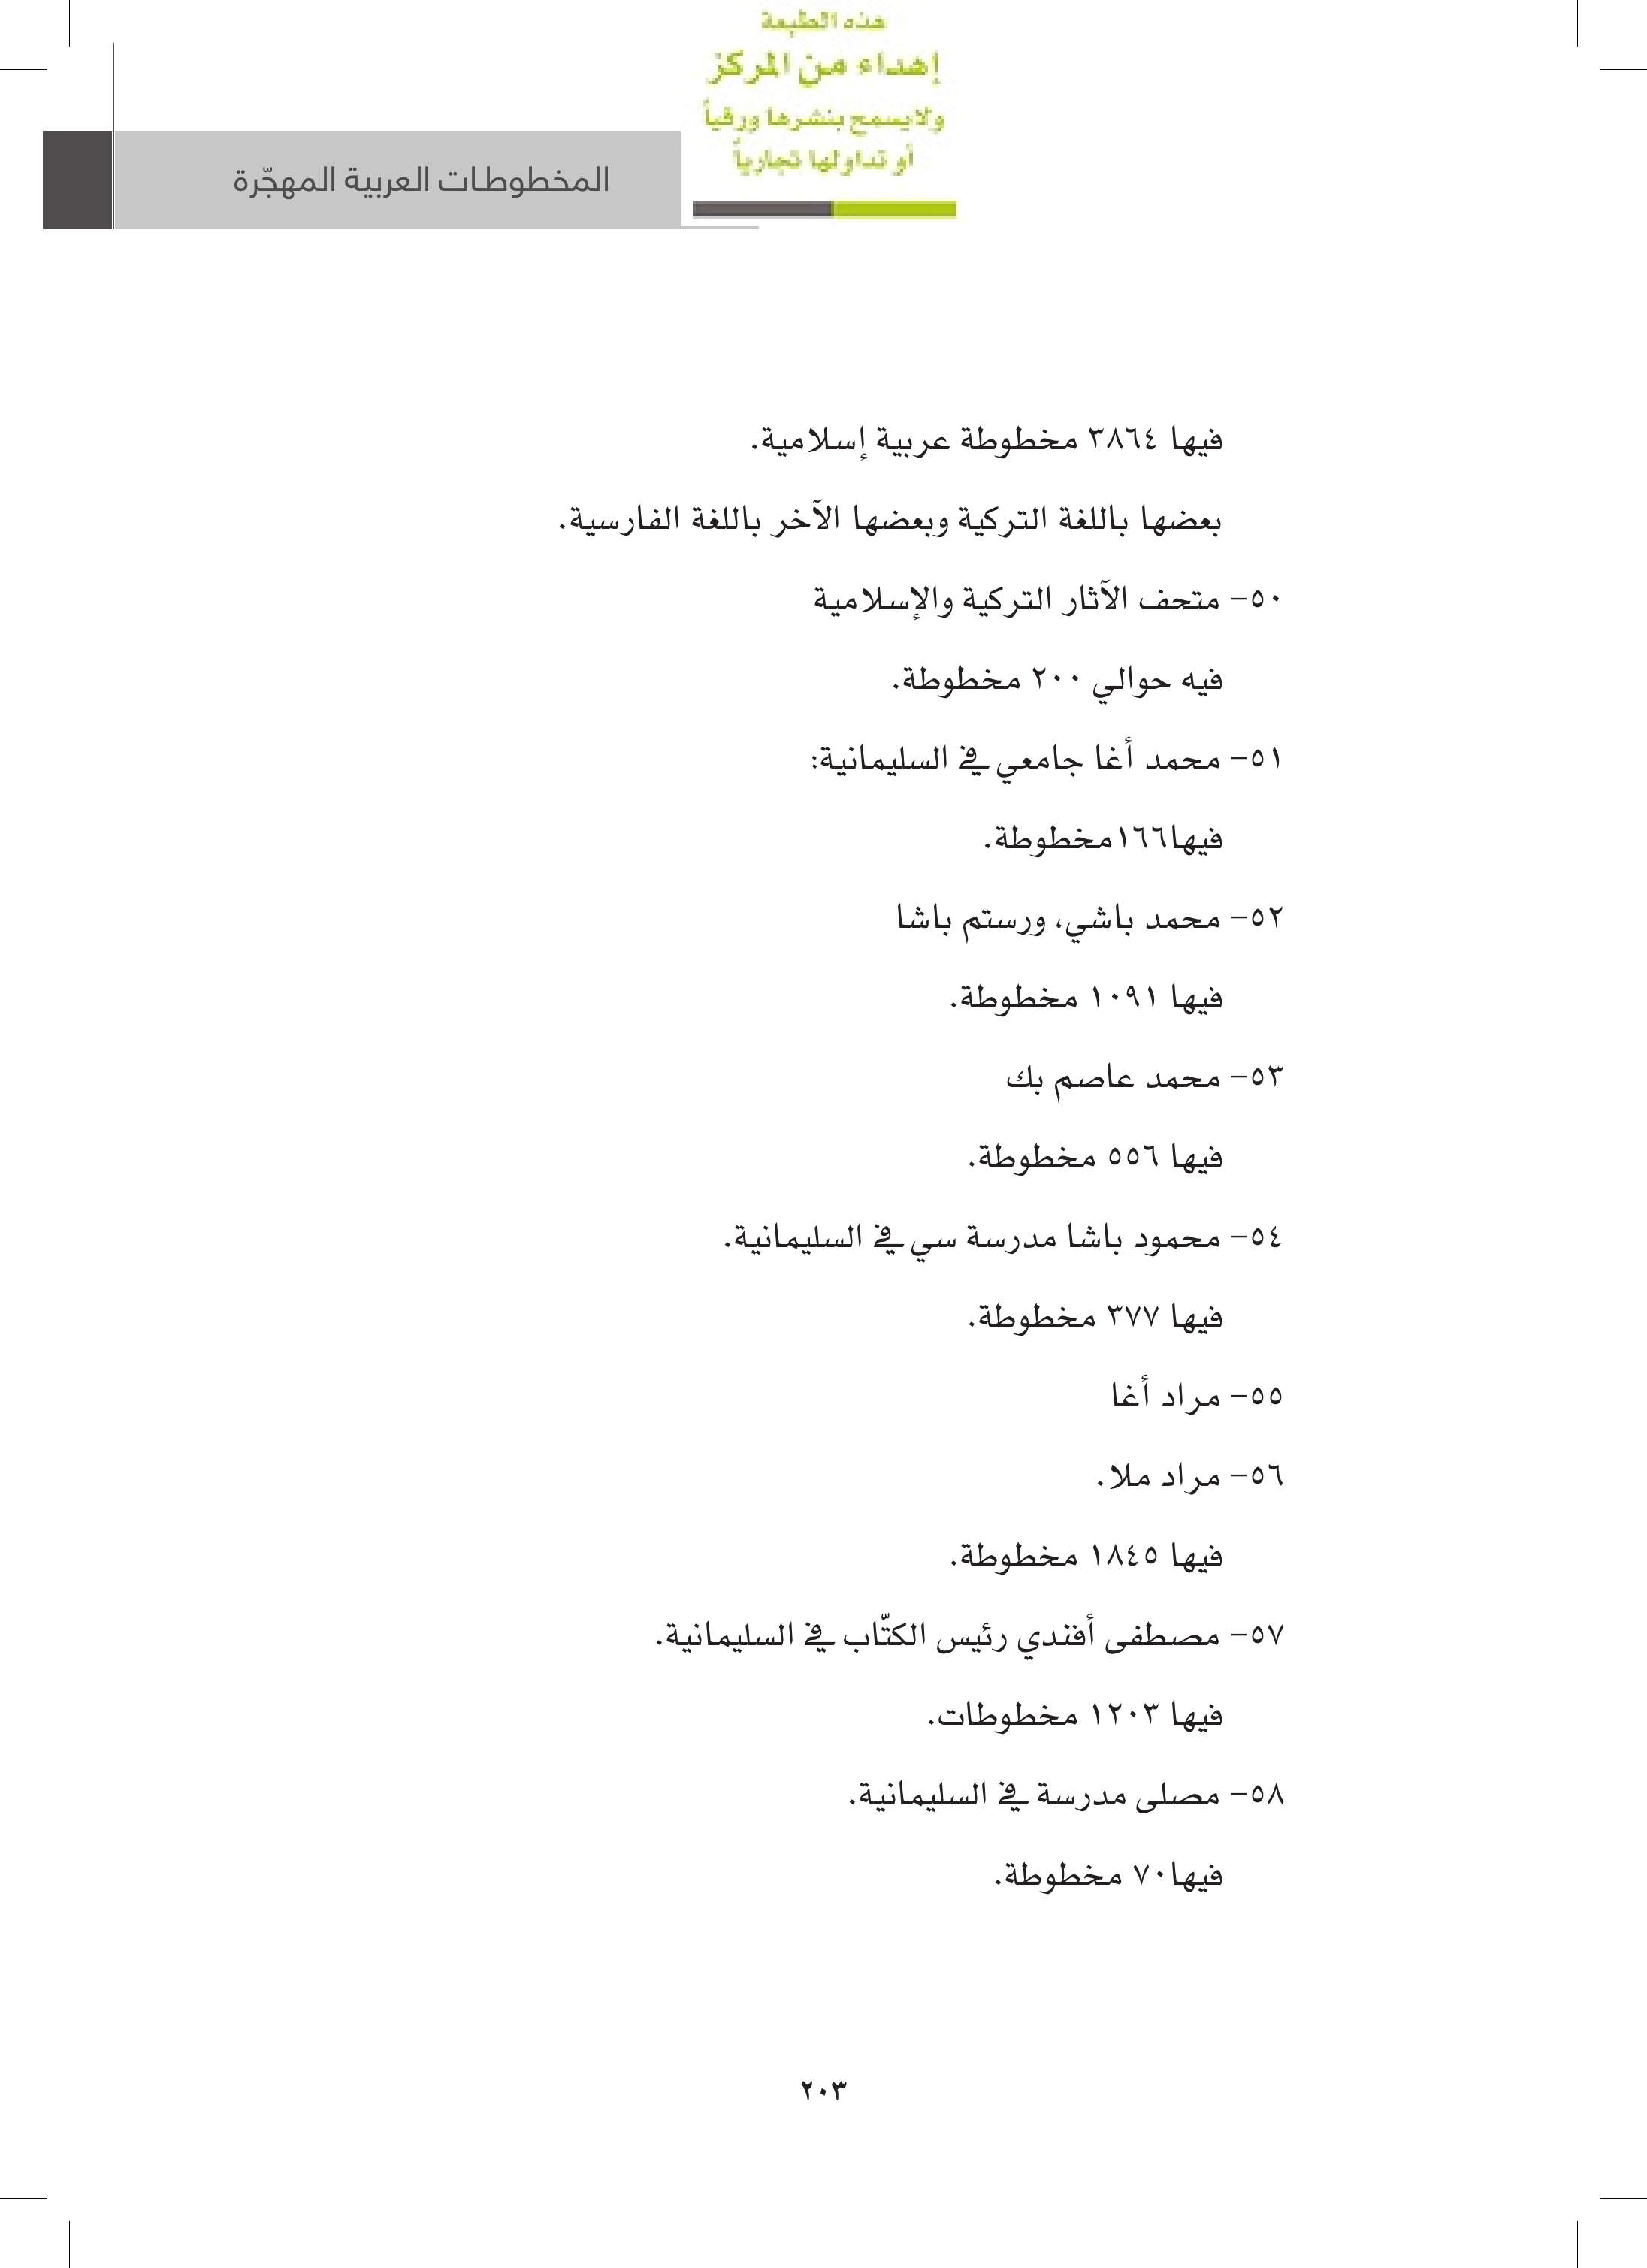 هذه الطبعة
إهداء من المركز
ولايسمح بنشرها ورقياً
أو تداولها تجارياً
المخطوطات العربية المهجّرة
فيها ٣٨٦٤ مخطوطة عربية إسلامية.
بعضها باللغة التركية وبعضها الآخر باللغة الفارسية.
٥٠- متحف الآثار التركية والإسلامية
فيه حوالي ٢٠٠ مخطوطة.
٥١- محمد أغا جامعي في السليمانية:
فيها١٦٦مخطوطة.
٥٢- محمد باشي، ورستم باشا
فيها ١٠٩١ مخطوطة.
٥٣- محمد عاصم بك
فيها ٥٥٦ مخطوطة.
٥٤- محمود باشا مدرسة سي في السليمانية.
فيها ٣٧٧ مخطوطة.
٥٥- مراد أغا
٥٦- مراد ملا.
فيها ١٨٤٥ مخطوطة.
٥٧- مصطفى أفندي رئيس الكتّاب في السليمانية.
فيها ١٢٠٣ مخطوطات.
٥٨- مصلى مدرسة في السليمانية.
فيها٧٠ مخطوطة.
٢٠٣